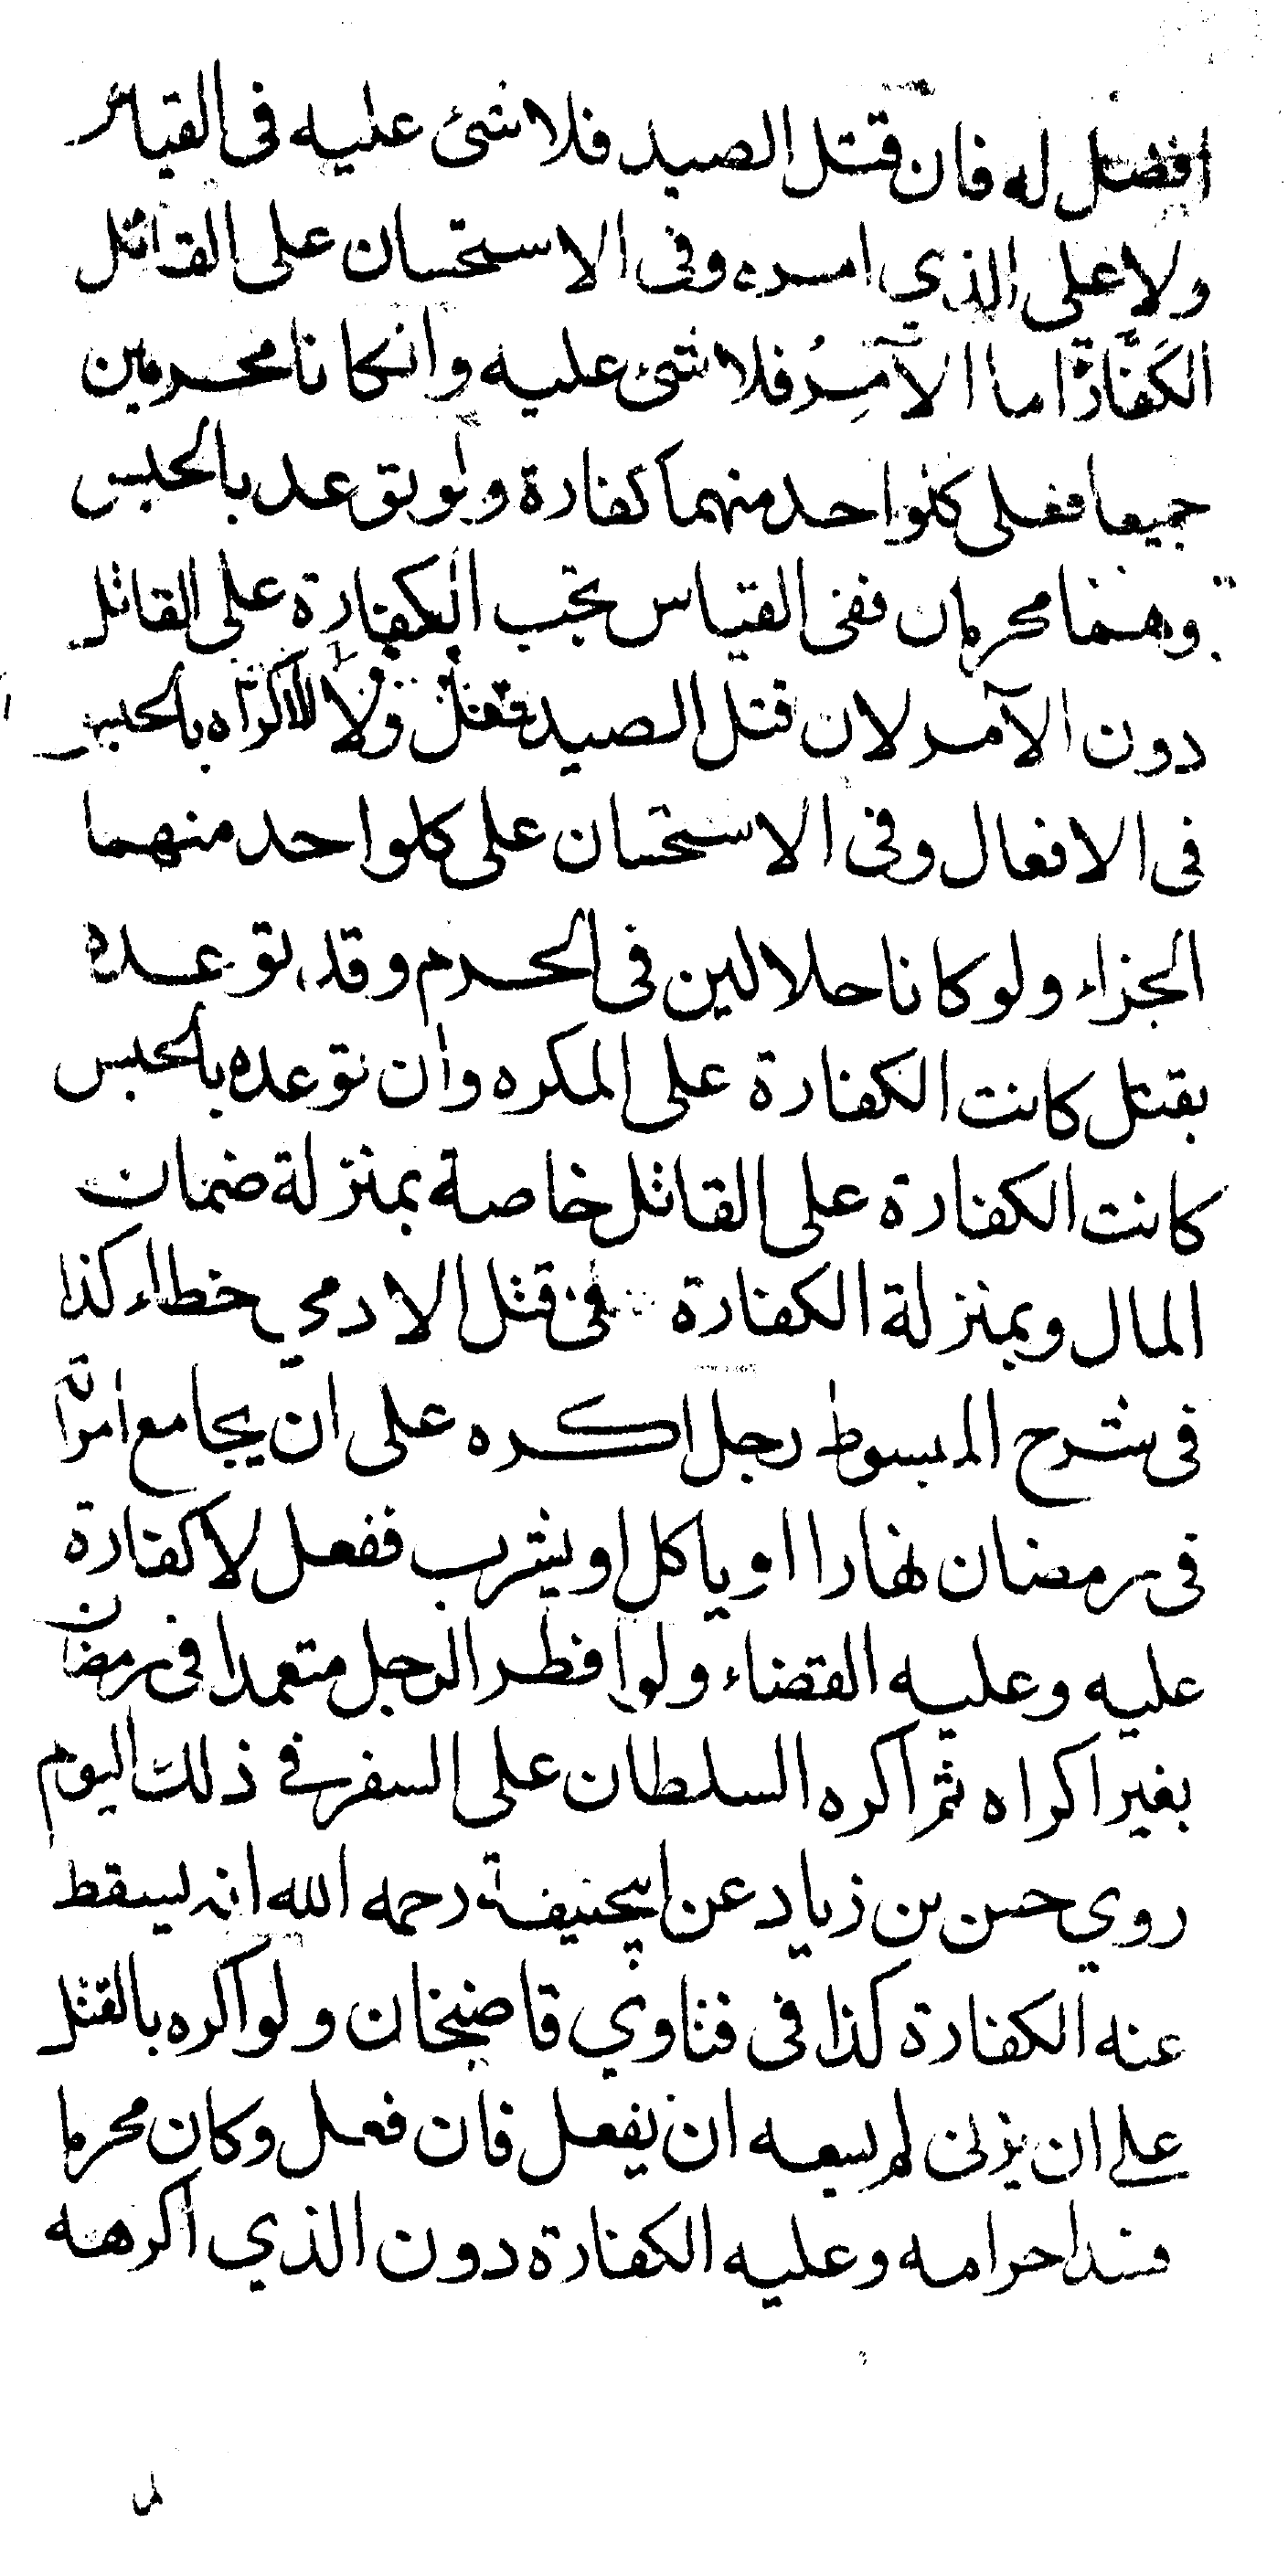 افضل له فان قتل الصيد فلا شئ عليه فى القياس
ولا على الذي امره وفى الاستحسان على القاتل
الكَفَّارَةُ اما الآمِرُ فلا شئ عليه وانكانا محرمين
جميعا فعلى كلواحد منهما كفارة ولو توعد بالحبس
وهما محرمان ففى القياس تجب الكفارة على القاتل
دون الآمر لان قتل الصيد فعل ولا اكراه بالحبس
فى الافعال وفى الاستحسان على كلواحد منهما
الجزاء ولو كانا حلالين فى الحرم وقد توعده
بقتل كانت الكفارة على المكره وان توعده بالحبس
كانت الكفارة على القاتل خاصة بمنزلة ضمان
المال وبمنزلة الكفارة فى قتل الادمي خطاء كذا
فى شرح المبسوط رجل اكره على ان يجامع امراته
فى رمضان نهارا او ياكل او يشرب ففعل لا كفارة
عليه وعليه القضاء ولو افطر الرجل متعمدا فى رمضان
بغير اكراه ثم اكره السلطان على السفر فے ذلك اليوم
روي حسن بن زياد عن ابيحنيفة رحمه الله انه يسقط
عنه الكفارة كذا فى فتاوي قاضيخان ولو اكره بالقتل
علے ان يزنى لم يسعه ان يفعل فان فعل وكان محرما
فسد احرامه وعليه الكفارة دون الذي اكرهه